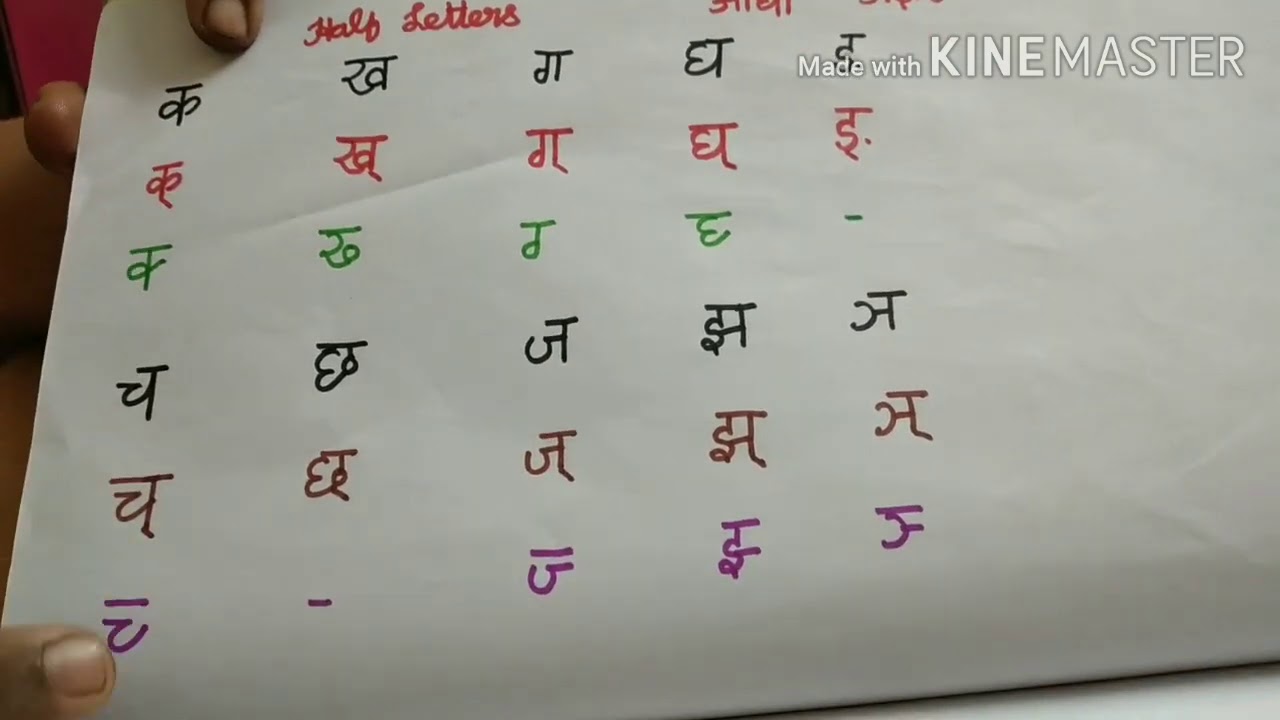 Half Letters आधा
Made with KINEMASTER
क ख ग घ ङ
क् ख् ग् घ् ङ्
क्‍ ख्‍ ग्‍ घ्‍ -
च छ ज झ ञ
च् छ् ज् झ् ञ्
च्‍ - ज्‍ झ्‍ ञ्‍